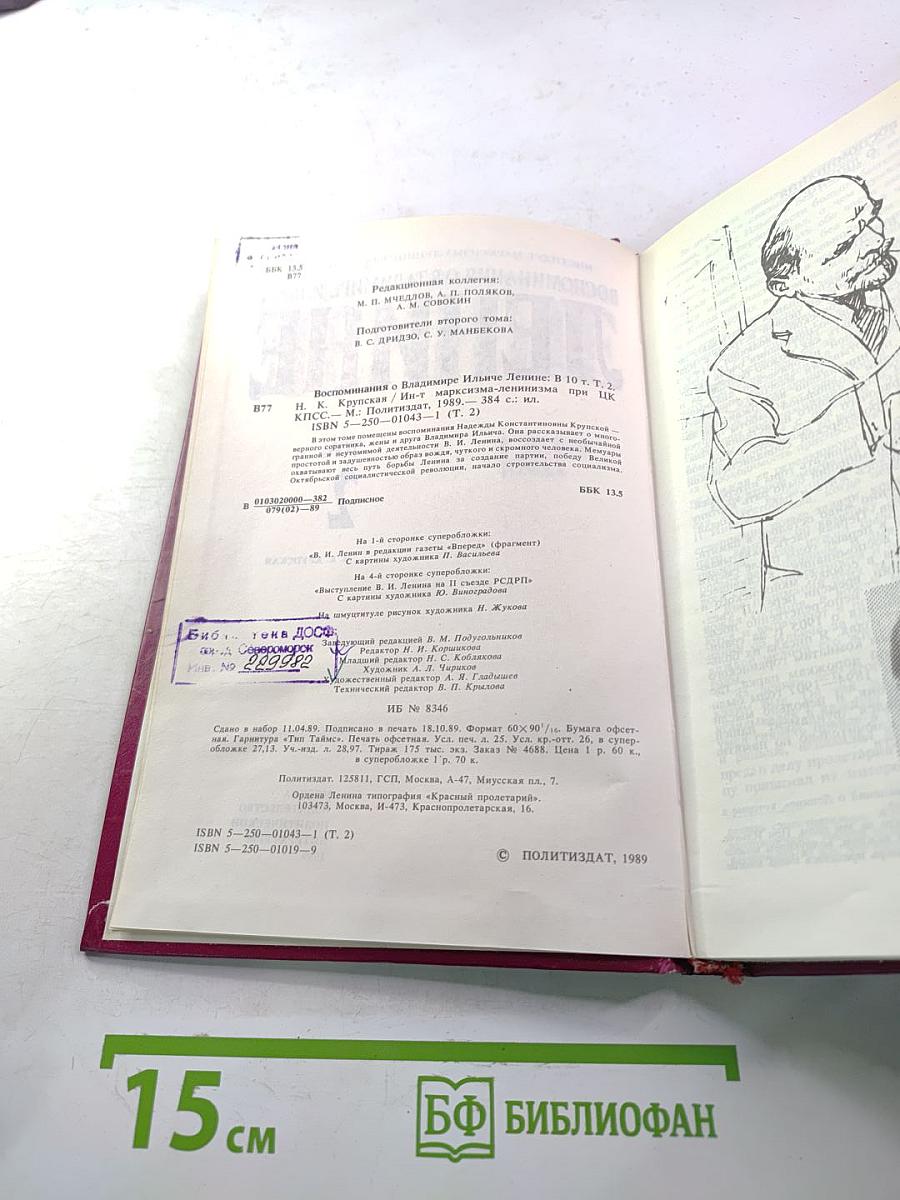 ББК 13.5
В77
Редакционная коллегия:
М. П. МЧЕДЛОВ, А. П. ПОЛЯКОВ,
А. М. СОВОКИН
Подготовители второго тома:
В. С. ДРИДЗО, С. У. МАНБЕКОВА
Воспоминания о Владимире Ильиче Ленине: В 10 т. Т. 2,
В77 Н. К. Крупская / Ин-т марксизма-ленинизма при ЦК
КПСС.— М.: Политиздат, 1989.— 384 с.: ил.
ISBN 5—250—01043—1 (Т. 2)
В этом томе помещены воспоминания Надежды Константиновны Крупской —
верного соратника, жены и друга Владимира Ильича. Она рассказывает о много-
гранной и неутомимой деятельности В. И. Ленина, воссоздает с необычайной
простотой и задушевностью образ вождя, чуткого и скромного человека. Мемуары
охватывают весь путь борьбы Ленина за создание партии, победу Великой
Октябрьской социалистической революции, начало строительства социализма.
В 0103020000—382 Подписное
079(02)—89
ББК 13.5
На 1-й сторонке суперобложки:
«В. И. Ленин в редакции газеты «Вперед» (фрагмент)
С картины художника П. Васильева
На 4-й сторонке суперобложки:
«Выступление В. И. Ленина на II съезде РСДРП»
С картины художника Ю. Виноградова
На шмуцтитуле рисунок художника Н. Жукова
ДОСФ
Североморск
Инв. № 229982
Заведующий редакцией В. М. Подугольников
Редактор Н. И. Коршикова
Младший редактор Н. С. Коблякова
Художник А. Л. Чириков
Художественный редактор А. Я. Гладышев
Технический редактор В. П. Крылова
ИБ № 8346
Сдано в набор 11.04.89. Подписано в печать 18.10.89. Формат 60×90 1/16. Бумага офсет-
ная. Гарнитура «Тип Таймс». Печать офсетная. Усл. печ. л. 25. Усл. кр.-отт. 26, в супер-
обложке 27,13. Уч.-изд. л. 28,97. Тираж 175 тыс. экз. Заказ № 4688. Цена 1 р. 60 к.,
в суперобложке 1 р. 70 к.
Политиздат. 125811, ГСП, Москва, А-47, Миусская пл., 7.
Ордена Ленина типография «Красный пролетарий».
103473, Москва, И-473, Краснопролетарская, 16.
ISBN 5—250—01043—1 (Т. 2)
ISBN 5—250—01019—9
© ПОЛИТИЗДАТ, 1989
15 см
БФ БИБЛИОФАН